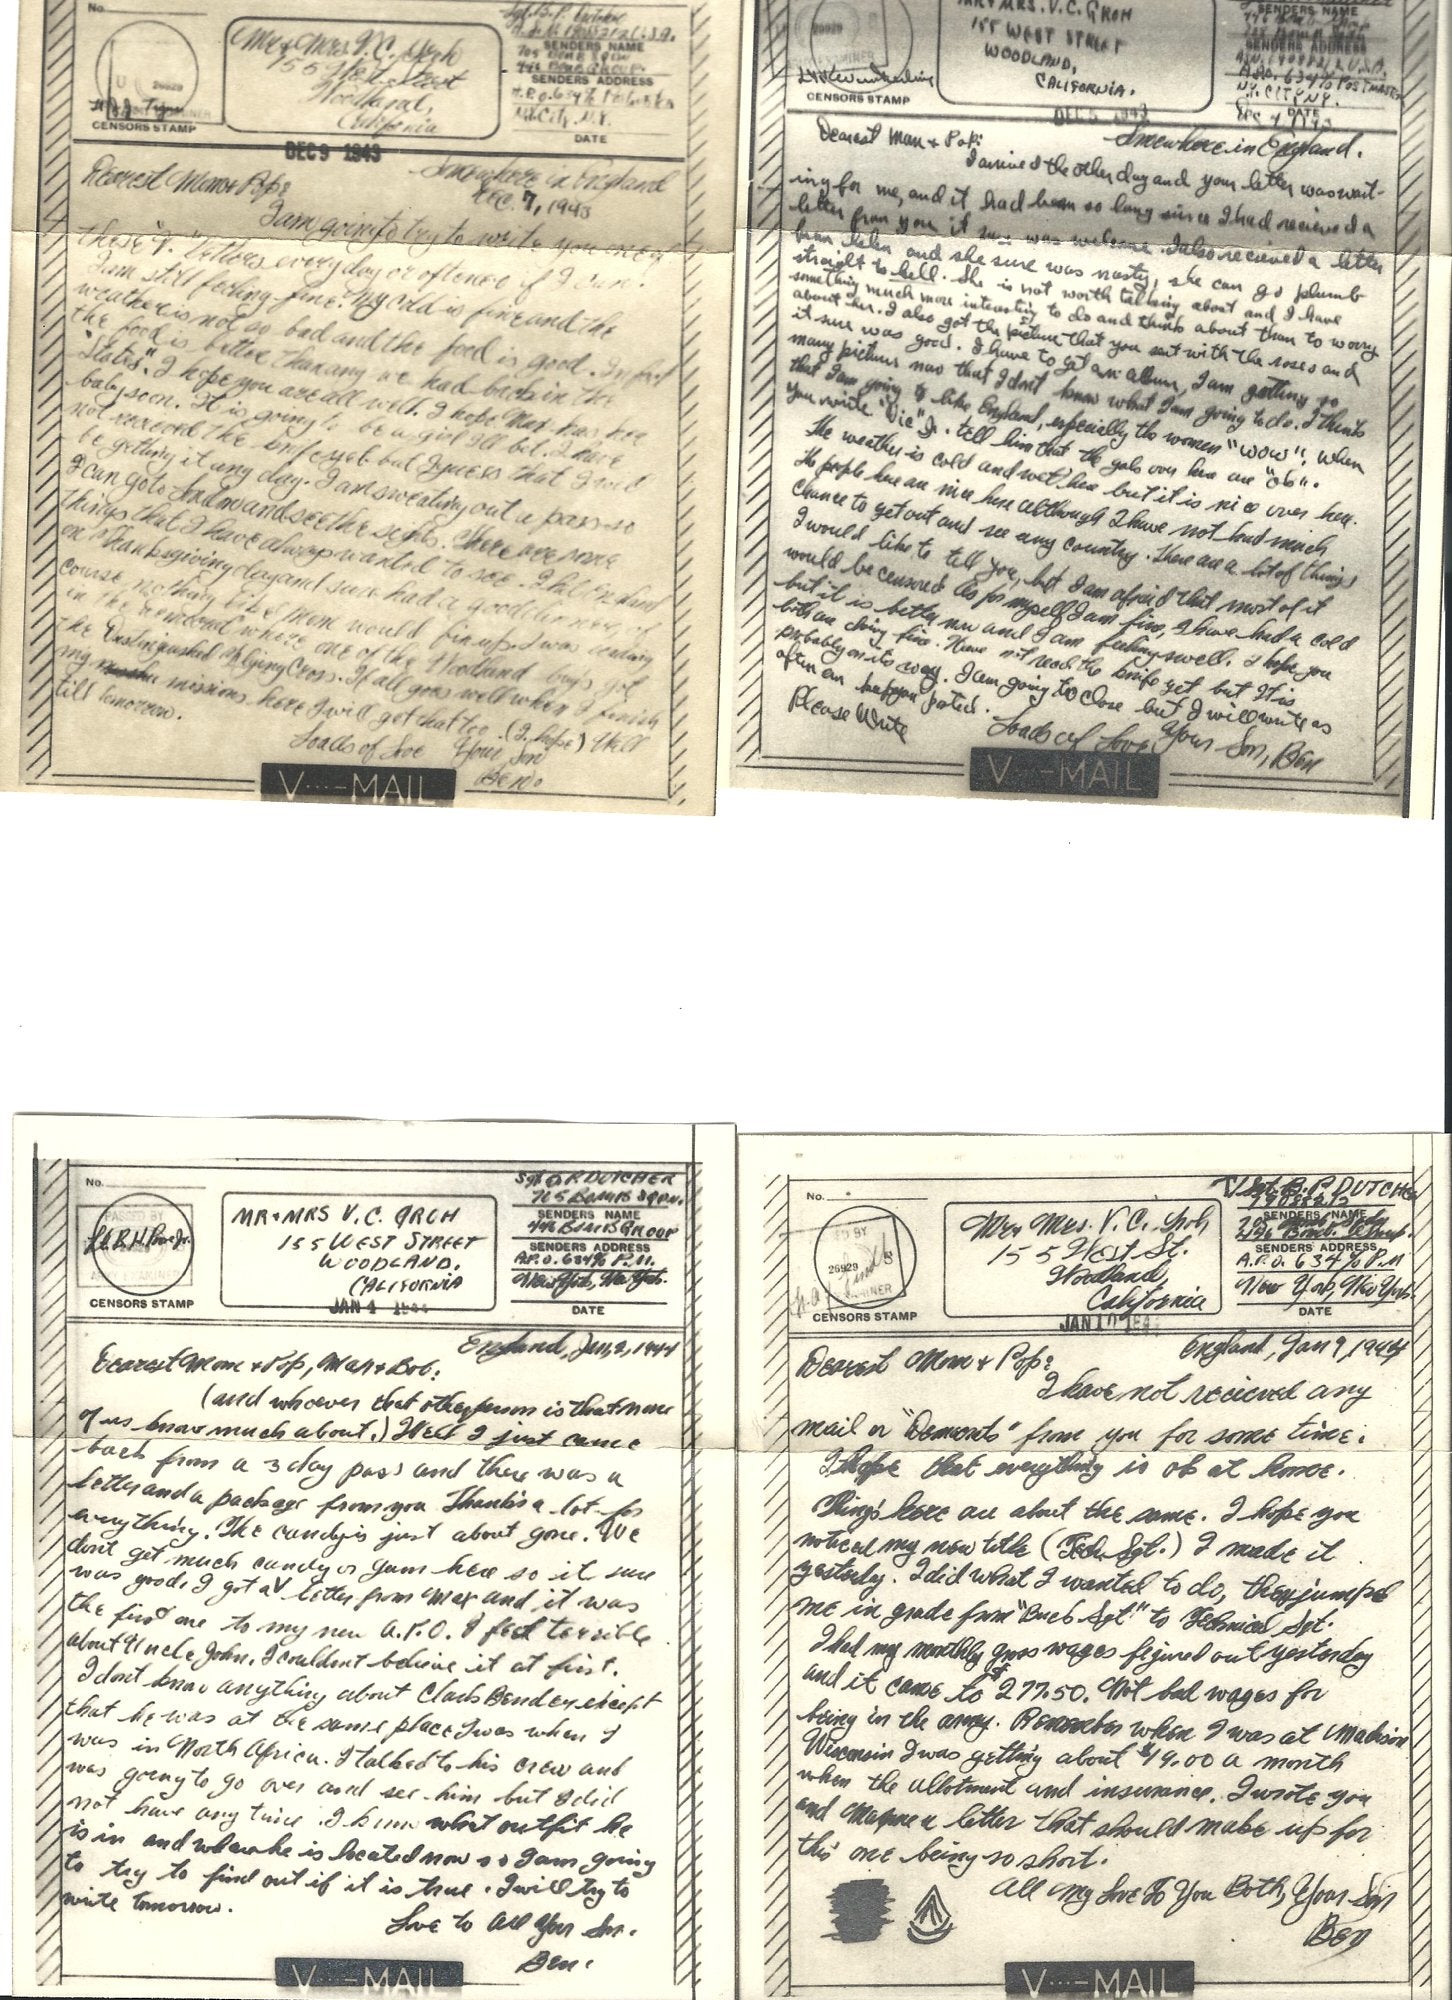 No.
Mr & Mrs. V.C. Groh
155 West Street
Woodland,
California
Sgt. B.P. Dutcher
SENDERS NAME
SENDERS ADDRESS
N.Y. City, N.Y.
DATE
CENSORS STAMP
DEC 9 1943
Somewhere in England
DEC. 7, 1943
Dearest Mom & Pop:
I am going to try to write you one of
these "V" letters every day or oftener if I can.
I am still feeling fine. My cold is fine and the
weather is not so bad and the food is good. In fact
the food is better than any we had back in the
"States". I hope you are all well. I hope Max has her
baby soon. It is going to be a girl I'll bet. I have
not received the knife yet but I guess that I will
be getting it any day. I am sweating out a pass so
I can go to London and see the sights. There are some
things that I have always wanted to see. I
on Thanksgiving day and sure had a good dinner, of
course nothing like Mom would fix up. I was reading
in the where one of the Woodland boys got
the Distinguished Flying Cross. If all goes well when I finish
my missions here I will get that too. (I hope) Well
till tomorrow.
Loads of Love Your Son
V···—MAIL
MR & MRS. V.C. GROH
155 WEST STREET
WOODLAND,
CALIFORNIA.
SENDERS NAME
SENDERS ADDRESS
A.P.O. 634 % POSTMASTER
N.Y. CITY N.Y.
DATE
DEC 4 1943
CENSORS STAMP
Somewhere in England.
Dearest Mom & Pop:
I arrived the other day and your letter was wait-
ing for me, and it had been so long since I had recieved a
letter from you it sure was welcome. I also recieved a letter
from Helen and she sure was nasty, she can go plumb
straight to hell. She is not worth talking about and I have
something much more interesting to do and think about than to worry
about her. I also got the picture that you sent with the roses and
it sure was good. I have to get an album, I am getting so
many pictures now that I don't know what I am going to do. I think
that I am going to like England, especially the women "wow". When
you write "Vic" Jr. tell him that the gals over here are "ok".
The weather is cold and wet here but it is nice over here.
The people here are nice here although I have not had much
chance to get out and see any country. There are a lot of things
I would like to tell you, but I am afraid that most of it
would be censored. As for myself I am fine, I have had a cold
but it is better now and I am feeling swell. I hope you
both are doing fine. Have not recd the knife yet but it is
probably on its way. I am going to close but I will write as
often and keep you posted.
Please Write
Loads of Love Your Son, Ben
V···—MAIL
No.
PASSED BY
ARMY EXAMINER
CENSORS STAMP
MR & MRS V.C. GROH
155 WEST STREET
WOODLAND,
CALIFORNIA
JAN 4 1944
Sgt B.P. DUTCHER
705 BOMB SQDN.
SENDERS NAME
446 BOMB GROUP
SENDERS ADDRESS
A.P.O. 634 % P.M.
New York, New York.
DATE
England, Jan, 2, 1944
Dearest Mom & Pop, Max & Bob:
(and whoever that other person is that none
of us know much about.) Well I just came
back from a 3 day pass and there was a
letter and a package from you. Thanks a lot for
everything. The candy is just about gone. We
dont get much candy or gum here so it sure
was good. I got a V letter from Max and it was
the first one to my new A.P.O. I feel terrible
about Uncle John. I couldnt believe it at first.
I dont know anything about Clark Bender except
that he was at the same place I was when I
was in North Africa. I talked to his crew and
was going to go over and see him but I did
not have any time. I know what outfit he
is in and where he is located now so I am going
to try to find out if it is true. I will try to
write tomorrow.
Love to All Your Son.
Ben.
V···—MAIL
No.
26929
CENSORS STAMP
Mr & Mrs. V.C. Groh
155 West St.
Woodland,
California
JAN 10 1944
T/Sgt B.P. DUTCHER
SENDERS NAME
446 Bomb. Group.
SENDERS ADDRESS
A.P.O. 634 % P.M
New York, New York.
DATE
England, Jan 9, 1944
Dearest Mom & Pop:
I have not recieved any
mail or from you for some time.
I hope that everything is ok at home.
Things here are about the same. I hope you
noticed my new title (Tech. Sgt.) I made it
yesterdy. I did what I wanted to do, they jumped
me in grade from "Buck Sgt" to Technical Sgt.
I had my monthly gross wages figured out yesterday
and it came to $277.50. Not bad wages for
being in the army. Remember when I was at Madison
Wisconsin I was getting about $19.00 a month
when the allotment and insurance. I wrote you
and Maxine a letter that should make up for
this one being so short.
All My Love To You Both, Your Son
Ben
V···—MAIL